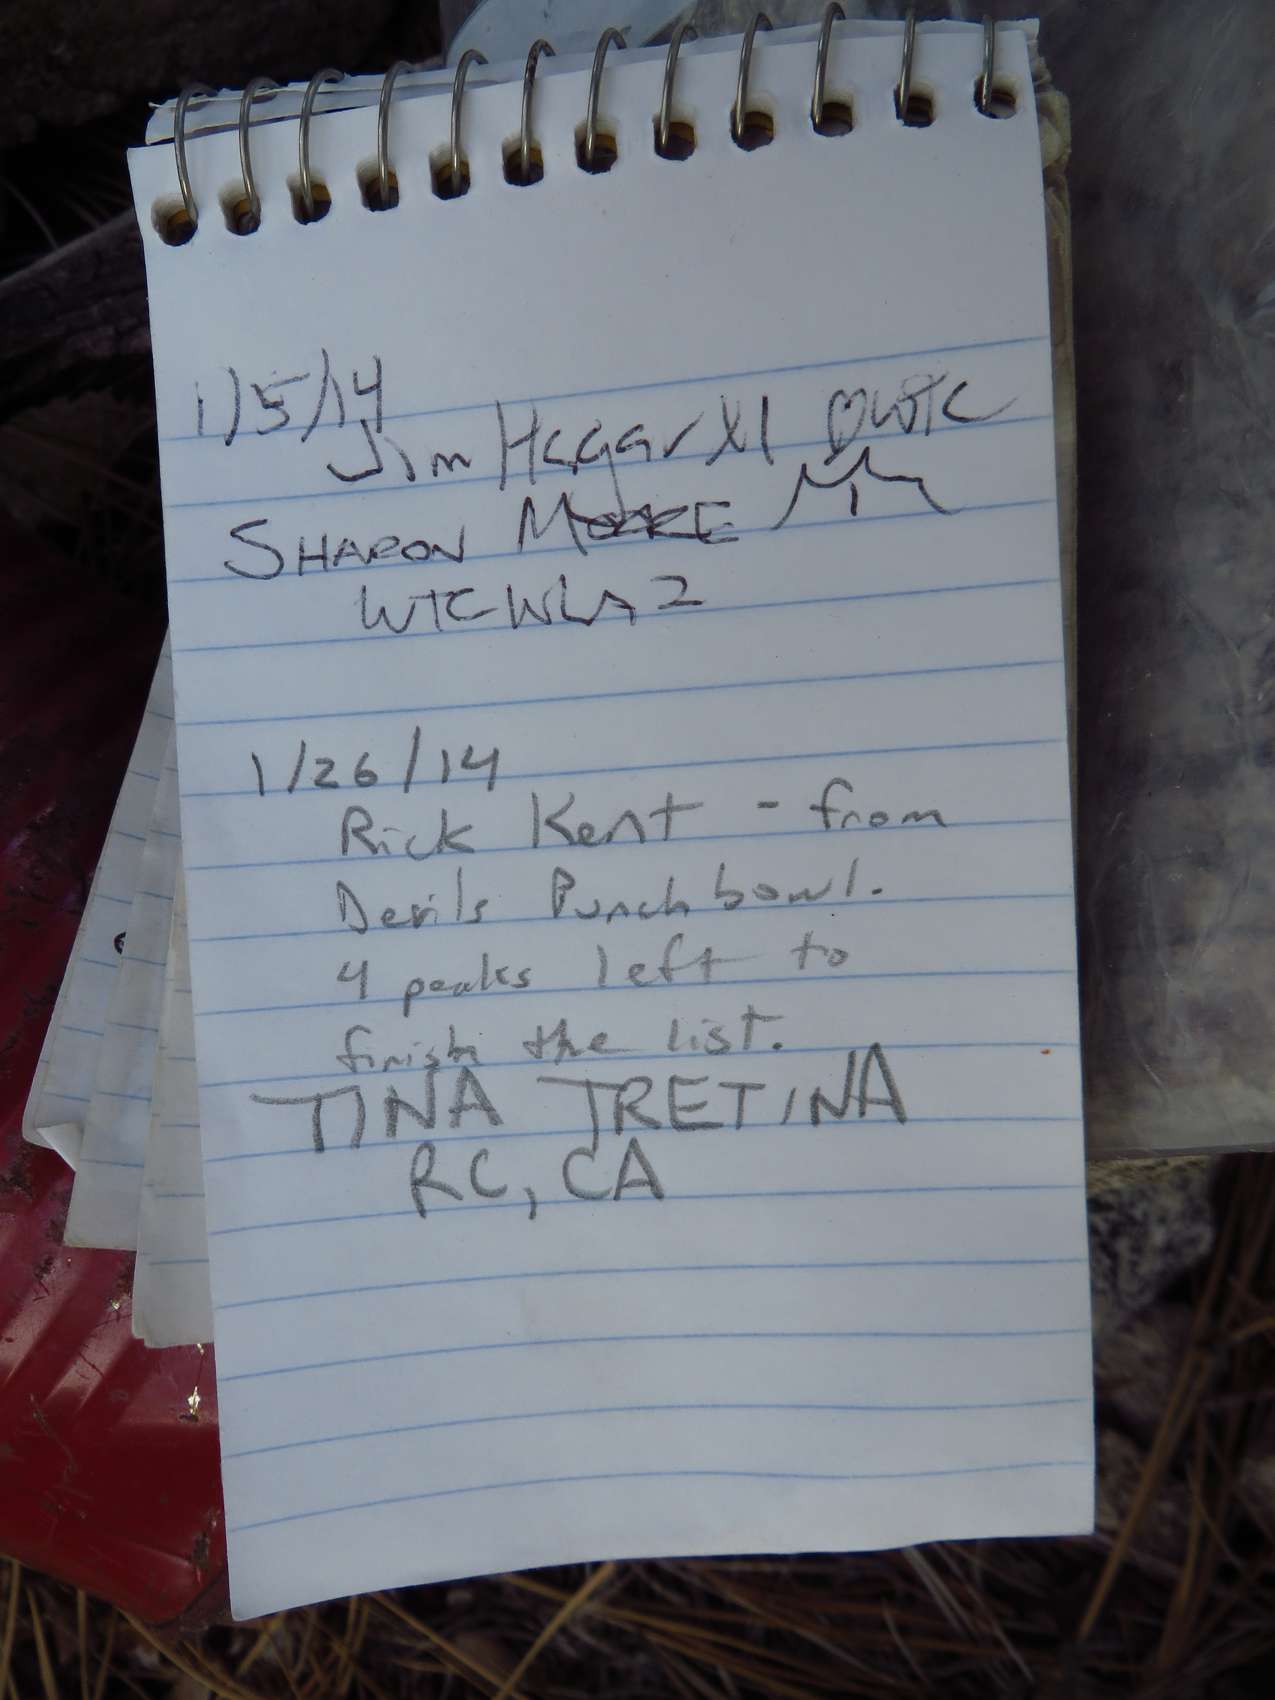 1/5/14
Jim Hagar XI WTC
SHARON MOORE
WTC WLA 2
1/26/14
Rick Kent - from
Devils Punchbowl.
4 peaks left to
finish the list.
TINA TRETINA
RC, CA